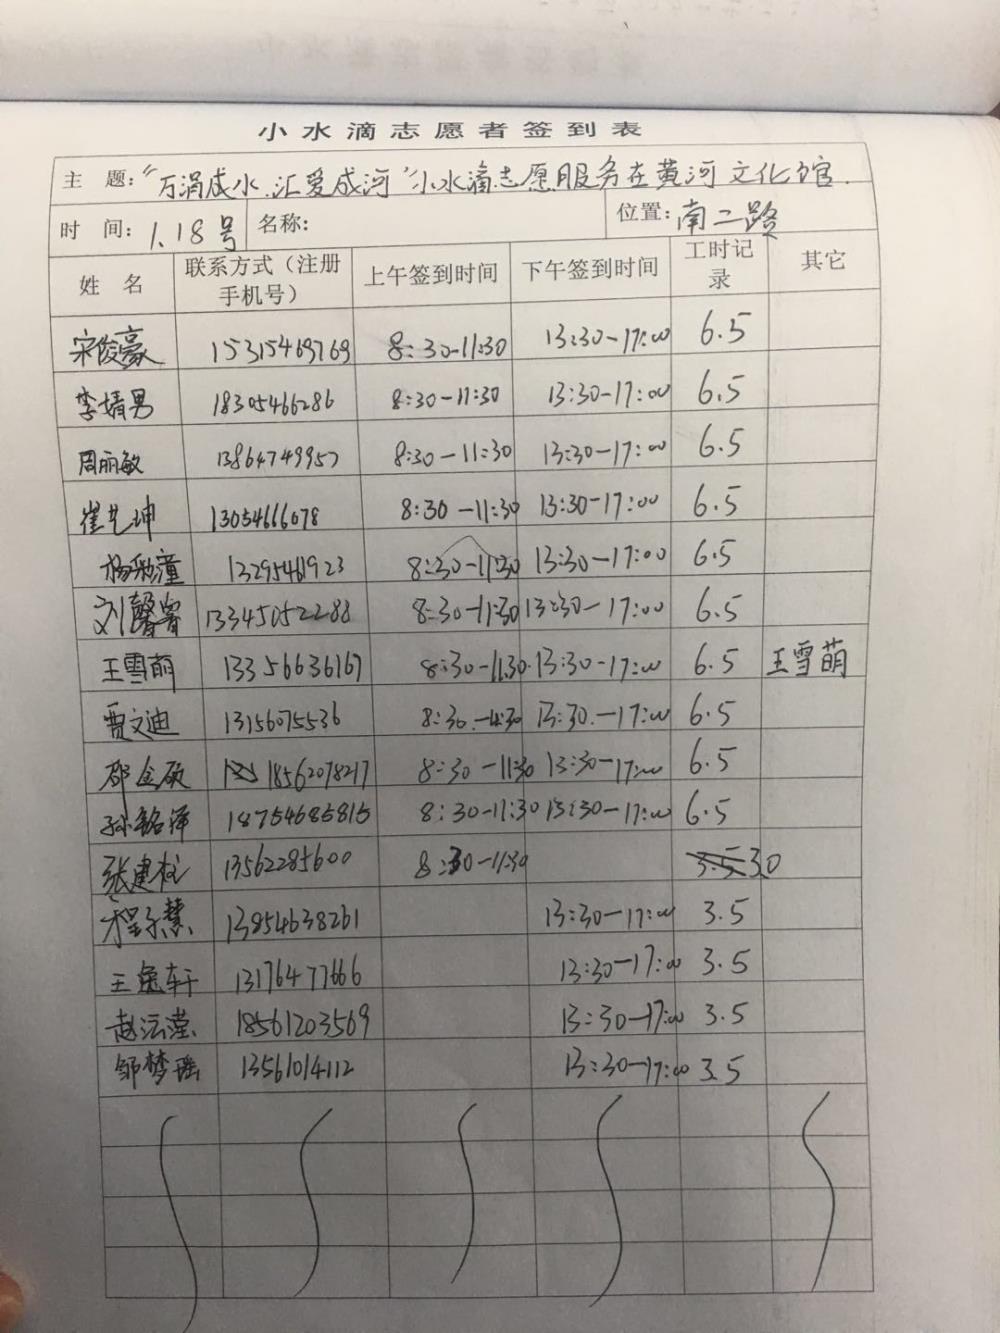 小水滴志愿者签到表
主 题: "万涓成水.汇爱成河"小水滴志愿服务在黄河文化馆.
时 间: 1.18号 名称: 位置: 南二路
姓 名 联系方式（注册手机号） 上午签到时间 下午签到时间 工时记录 其它
宋俊豪 15315469769 8:30-11:30 13:30-17:00 6.5
李婧男 18305466286 8:30-11:30 13:30-17:00 6.5
周丽敏 13864749957 8:30-11:30 13:30-17:00 6.5
崔艺坤 13054666078 8:30-11:30 13:30-17:00 6.5
杨彩潼 13295461923 8:30-11:30 13:30-17:00 6.5
刘馨 13345052288 8:30-11:30 13:30-17:00 6.5
王雪萌 13356636167 8:30-11:30 13:30-17:00 6.5 王雪萌
贾文迪 13156075536 8:30-11:30 13:30-17:00 6.5
金硕 18562078217 8:30-11:30 13:30-17:00 6.5
孙铭泽 18754685815 8:30-11:30 13:30-17:00 6.5
张建柱 13562285600 8:30-11:30 3.0
程子慧 13854638261 13:30-17:00 3.5
王 轩 13176477666 13:30-17:00 3.5
赵沄滢 18561203569 13:30-17:00 3.5
邹梦瑶 13561014112 13:30-17:00 3.5